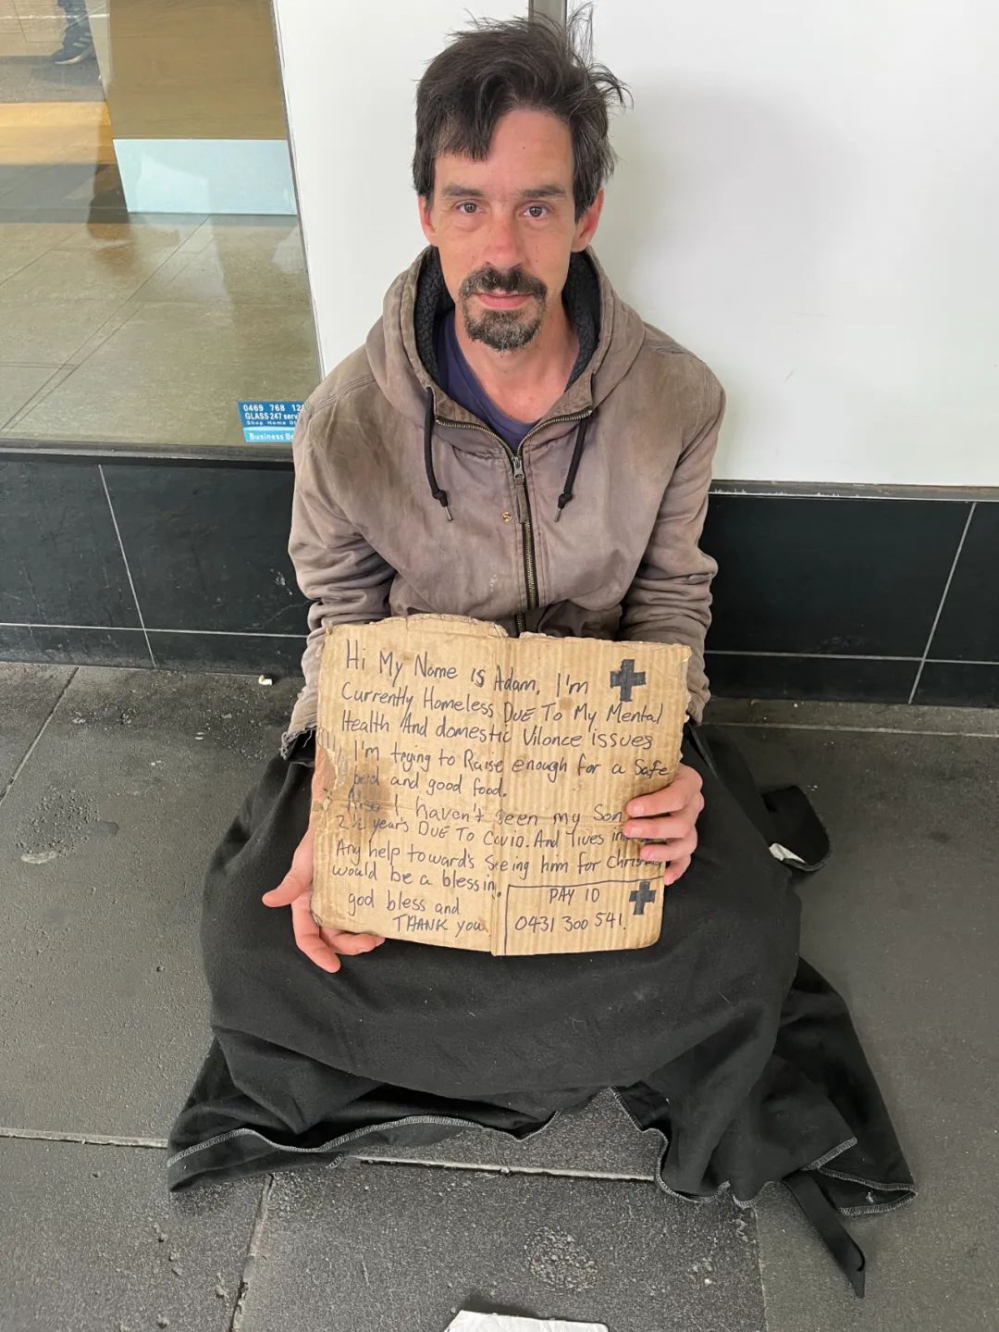 0469 768 12
GLASS 247 serv
Shop Home
Business
Hi My Name is Adam, I'm
Currently Homeless DUE TO My Mental
Health And domestic Vilonce issues
I'm trying to Raise enough for a Safe
and good food.
Also I haven't seen my Son
2 ½ years DUE TO Covid. And lives in
Any help towards Seeing him for
would be a blessin.
god bless and
THANK you.
PAY 10
0431 300 541.